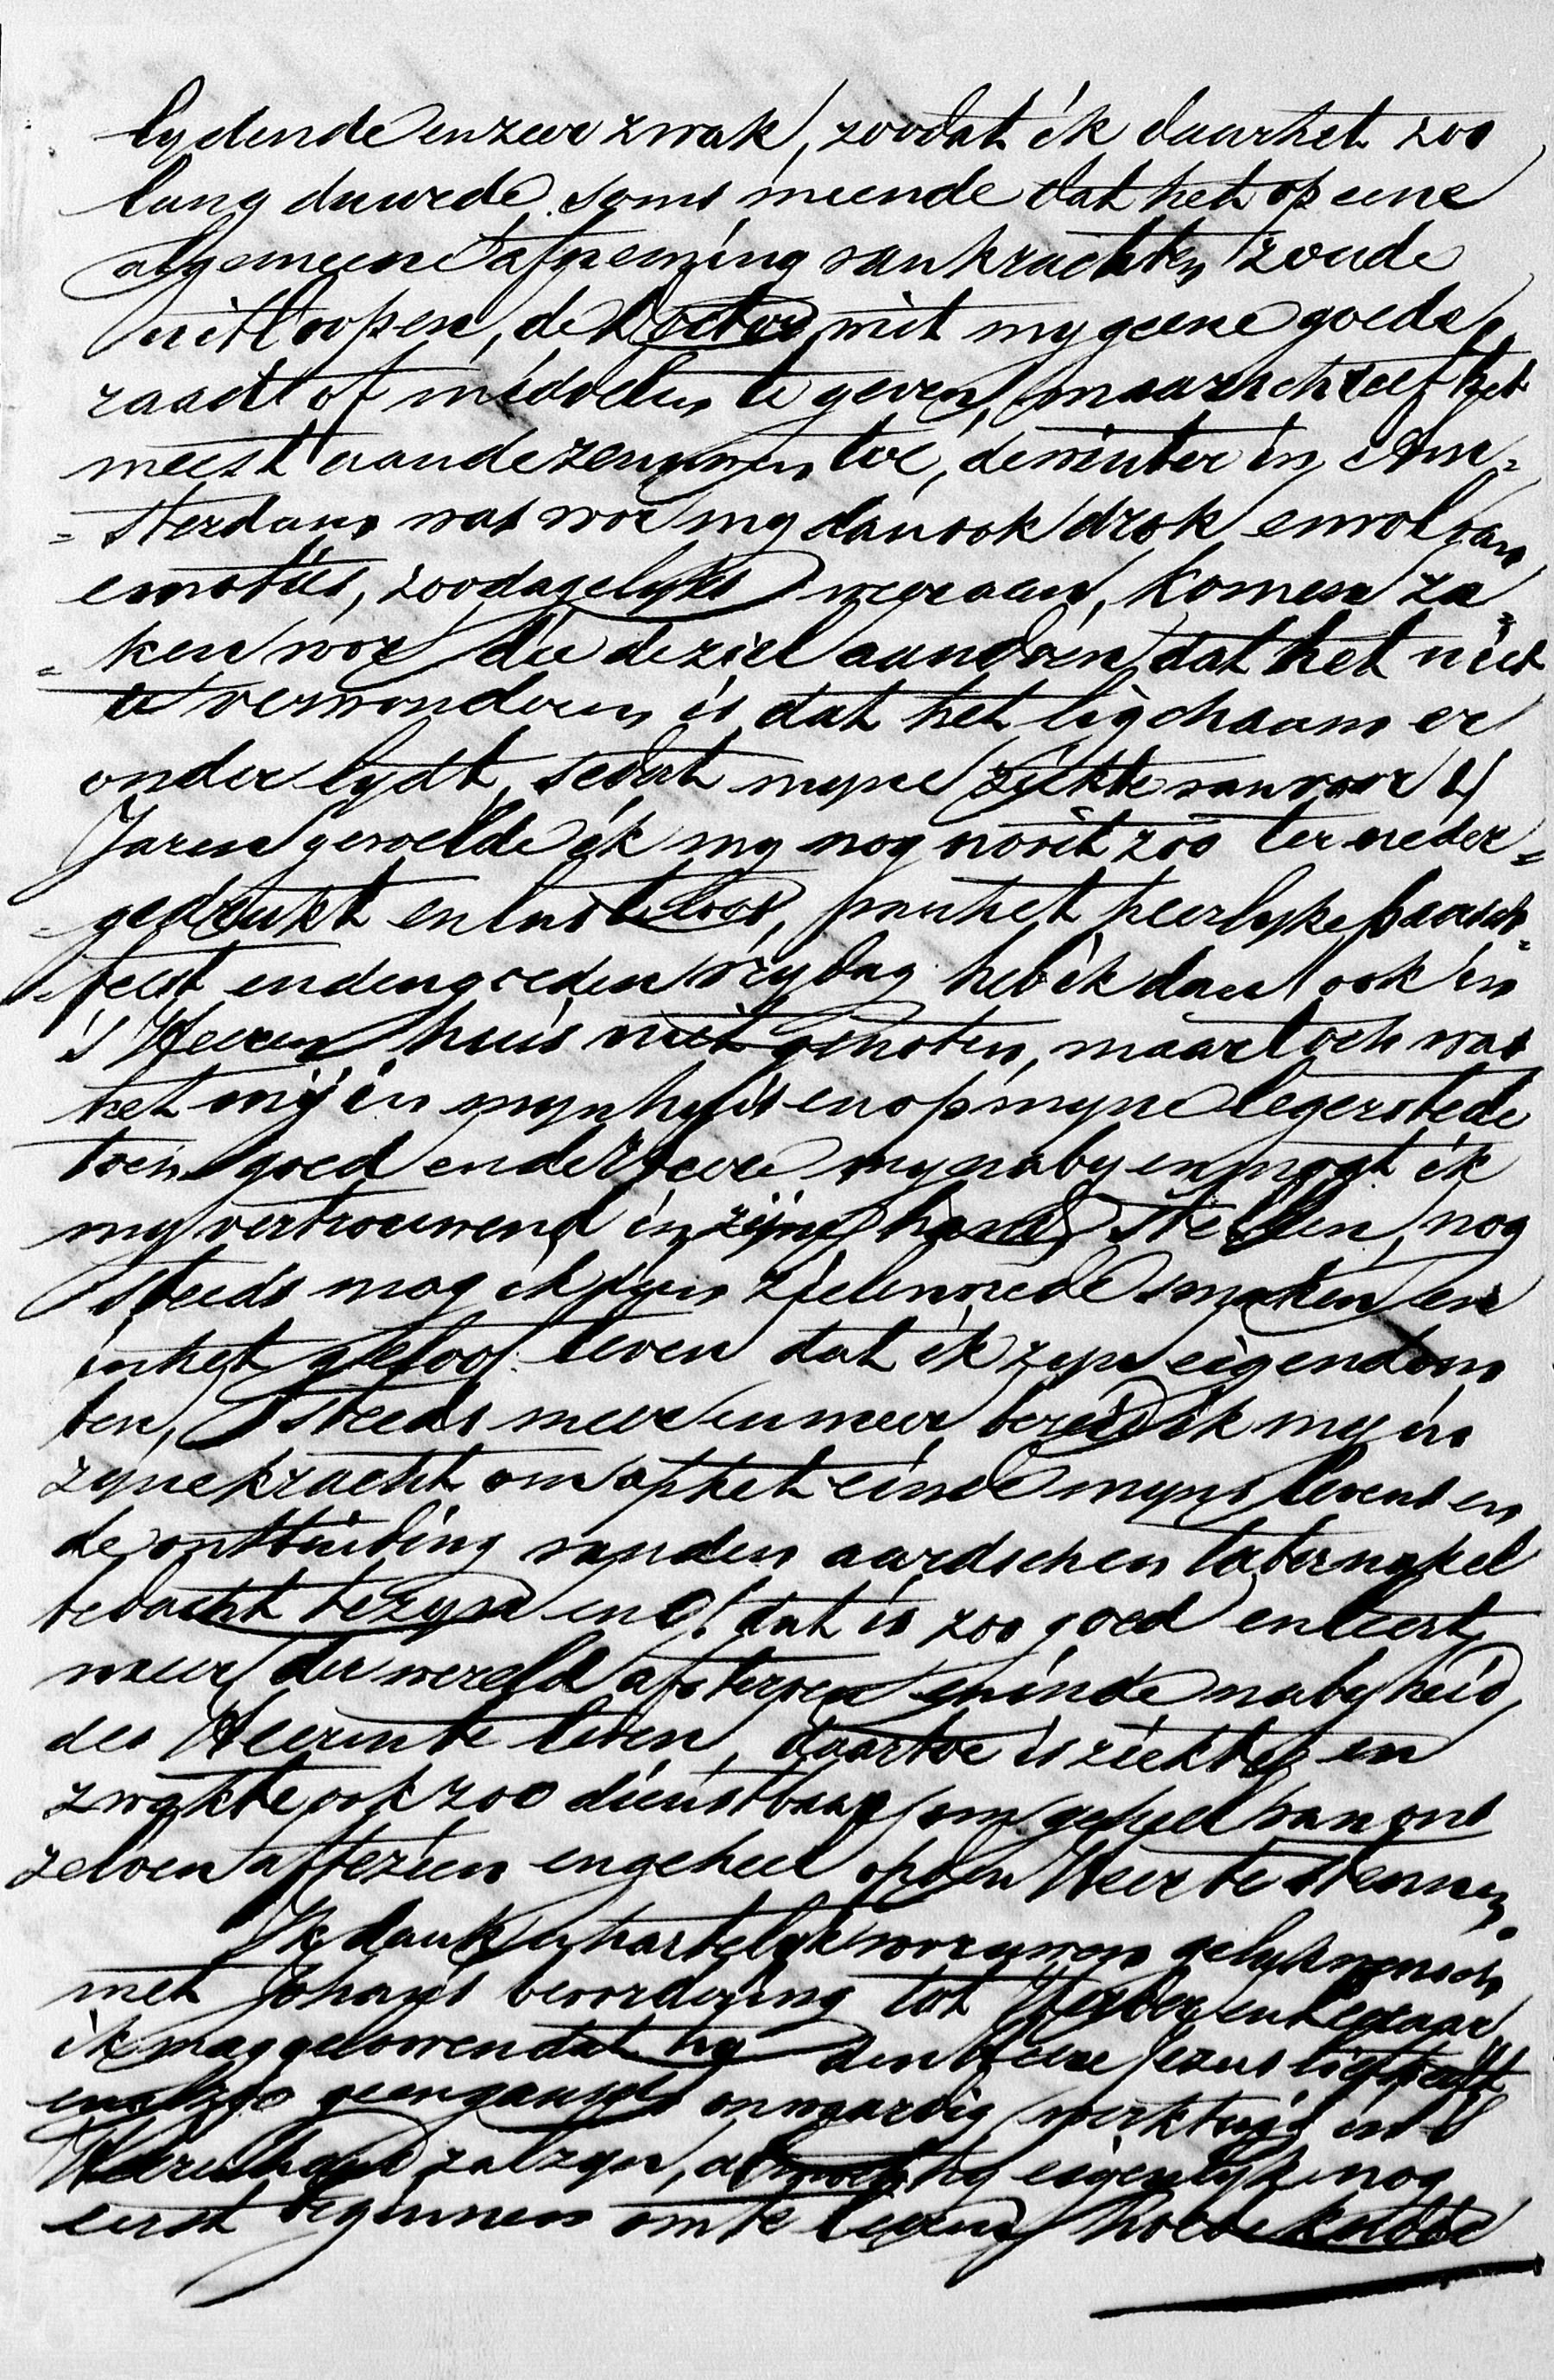 lydende en zeer zwak, zoodat ik daar het zoo
lang duurde soms meende dat het op eene
algemeene afneming van krachten zoude
uitloopen, de Doctor wist my geene goede
raad of middelen te geven, maar schreef het
meest aan de zenuwen toe, de winter in Am=
=sterdam was voor my dan ook drok en vol van
emoties, zoo dagelyks weer aan, komen za=
=ken voor die de ziel aandoen, dat het niet
te verwonderen is dat het ligchaam er
onder lydt, sedert myne ziekte van voor 4
Jaren gevoelde ik my nog nooit zoo ter neder=
=gedrukt en lusteloos, van het heerlyke paasch=
=feest en den goeden vrydag heb ik dan ook in
's Heeren huis niet genoten, maar toch was
het mij in myn huis en op myne legerstede
toen goed en de Heere my naby en mogt ik
my vertrouwend in zijne hand stellen, nog
steeds mag ik zyn zielevrede smaken en
in het geloof leven dat ik zyn eigendom
ben, steeds meer en meer bereid ik my in
zyne kracht om op het einde myns levens en
de ontbinding van den aardschen tabernakel
bedacht te zyn en O! dat is zoo goed en leert
meer der wereld afsterven en in de nabyheid
des Heeren te leven, daartoe is ziekte en
zwakte ook zoo dienstbaar om geheel van ons
zelven af te zien en geheel op den Heer te steunen.
Ik dank u hartelyk voor uwen gelukwensch
met Johans bevordering tot Herder en Leeraar
ik mag gelooven dat hy den Heere Jezus lief heeft
en alzoo geen gansch onwaardig werktuig in 's
Heeren hand zal zyn, alhoewel hy eigenlyk nog
eerst beginnen om te leeren hoe